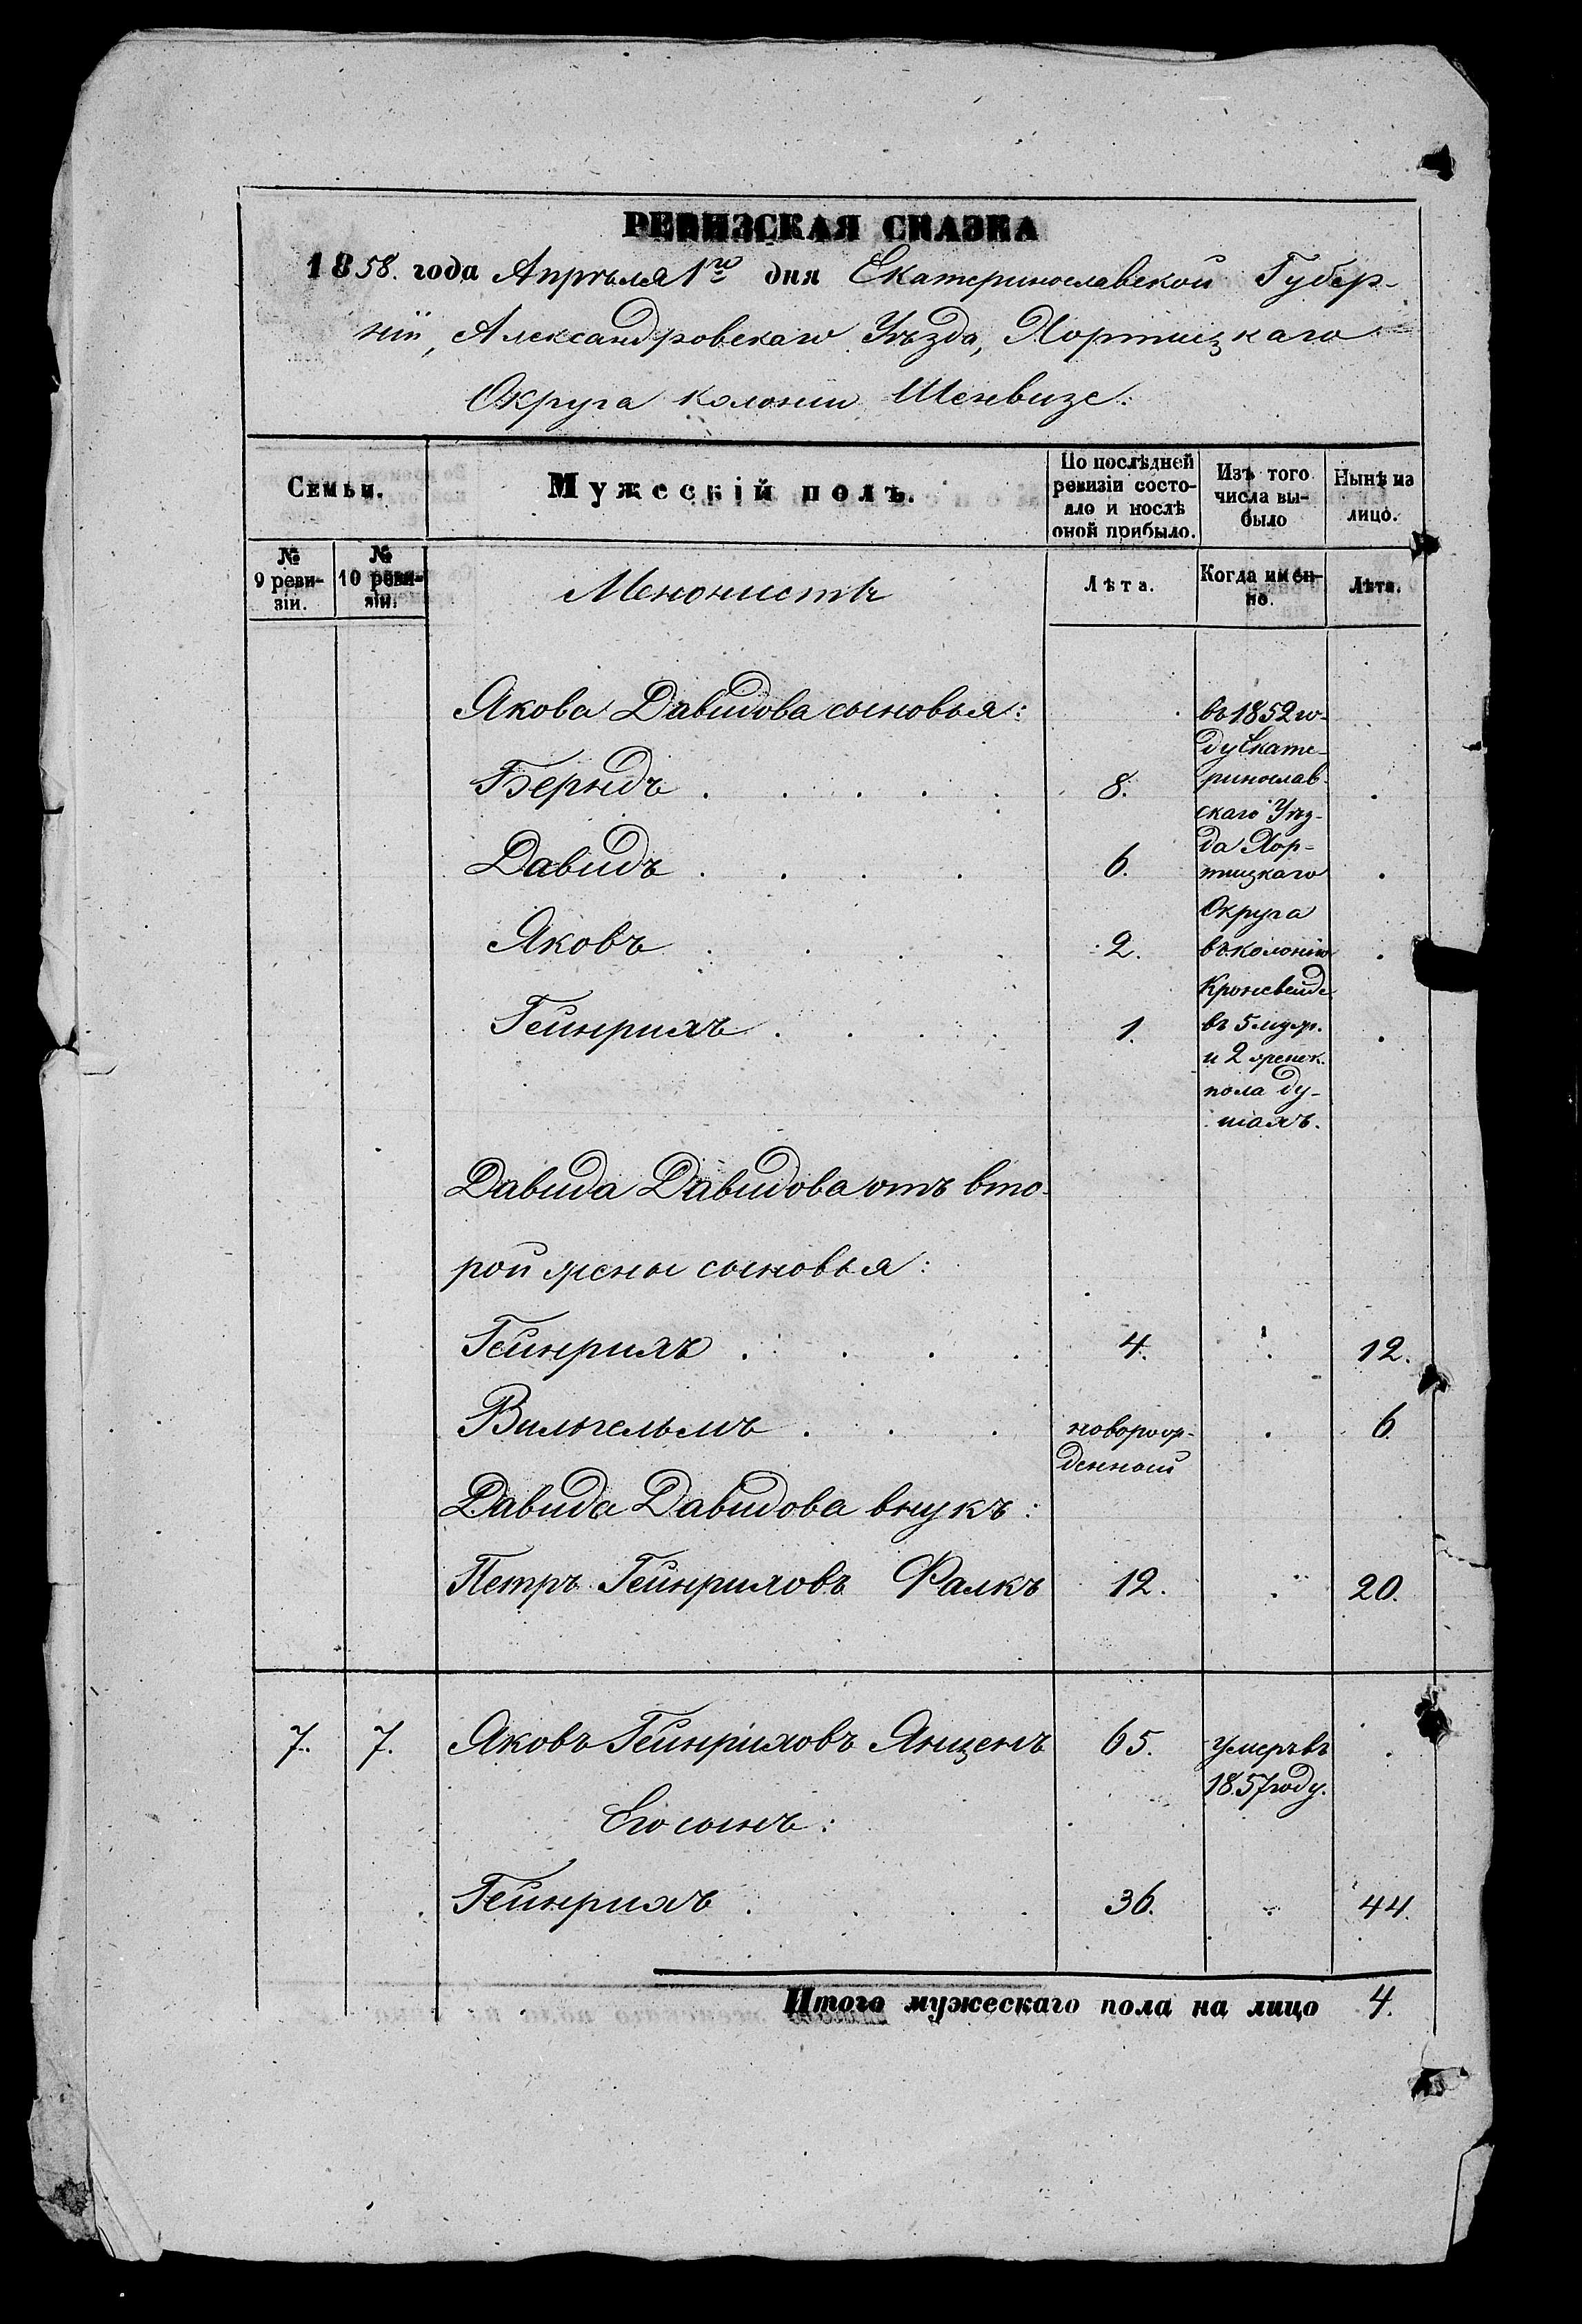 РЕВИЗСКАЯ СКАЗКА
1858. года Апрѣля 1го дня Екатеринославской Губер-
нiи, Александровскаго Уѣзда, Хортицкаго
Округа колонiи Шенвизе.
Семьи.
Мужескiй полъ.
По послѣдней
ревизiи состо-
яло и послѣ
оной прибыло.
Изъ того
числа вы-
было
Нынѣ на
лицо.
№
9 реви-
зiи.
№
10 реви-
зiи.
Менонистъ
Лѣта.
Когда имен-
но.
Лѣта.
Якова Давидова сыновья:
Берндъ . . . . . 8.
Давидъ . . . . 6.
Яковъ . . . . 2.
Гейнрихъ . . . . 1.
въ 1852 го-
ду Екате-
ринослав-
скаго Уѣз-
да Хор-
тицкаго
Округа
въ колонiю
Кронсвейде
въ 5 муж.
и 2 женск.
пола ду-
шахъ.
Давида Давидова отъ вто-
рой жены сыновья:
Гейнрихъ . . . . 4. . 12.
Вильгельмъ . . . новорож- . 6.
денный
Давида Давидова внукъ:
Петръ Гейнриховъ Фалкъ 12. . 20.
7. 7. Яковъ Гейнриховъ Янценъ 65. умеръ въ .
1857 году.
Его сынъ:
Гейнрихъ . . . . 36. . 44.
Итого мужескаго пола на лицо 4.